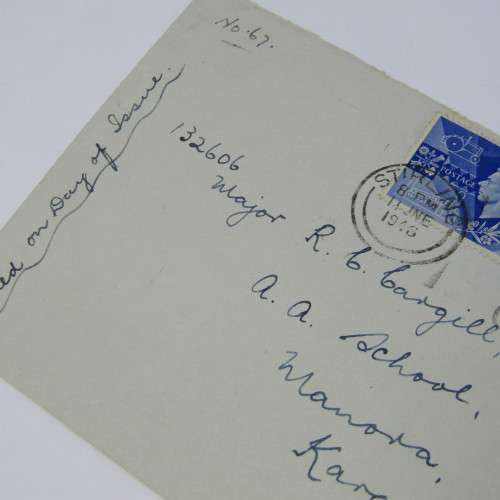 No. 67.
ed on Day of Issue.
132606
Major R. C. Cargill,
A. A. School,
Manora,
Kara
POSTAGE
STIRLING
8 - PM
11 JNE
1946